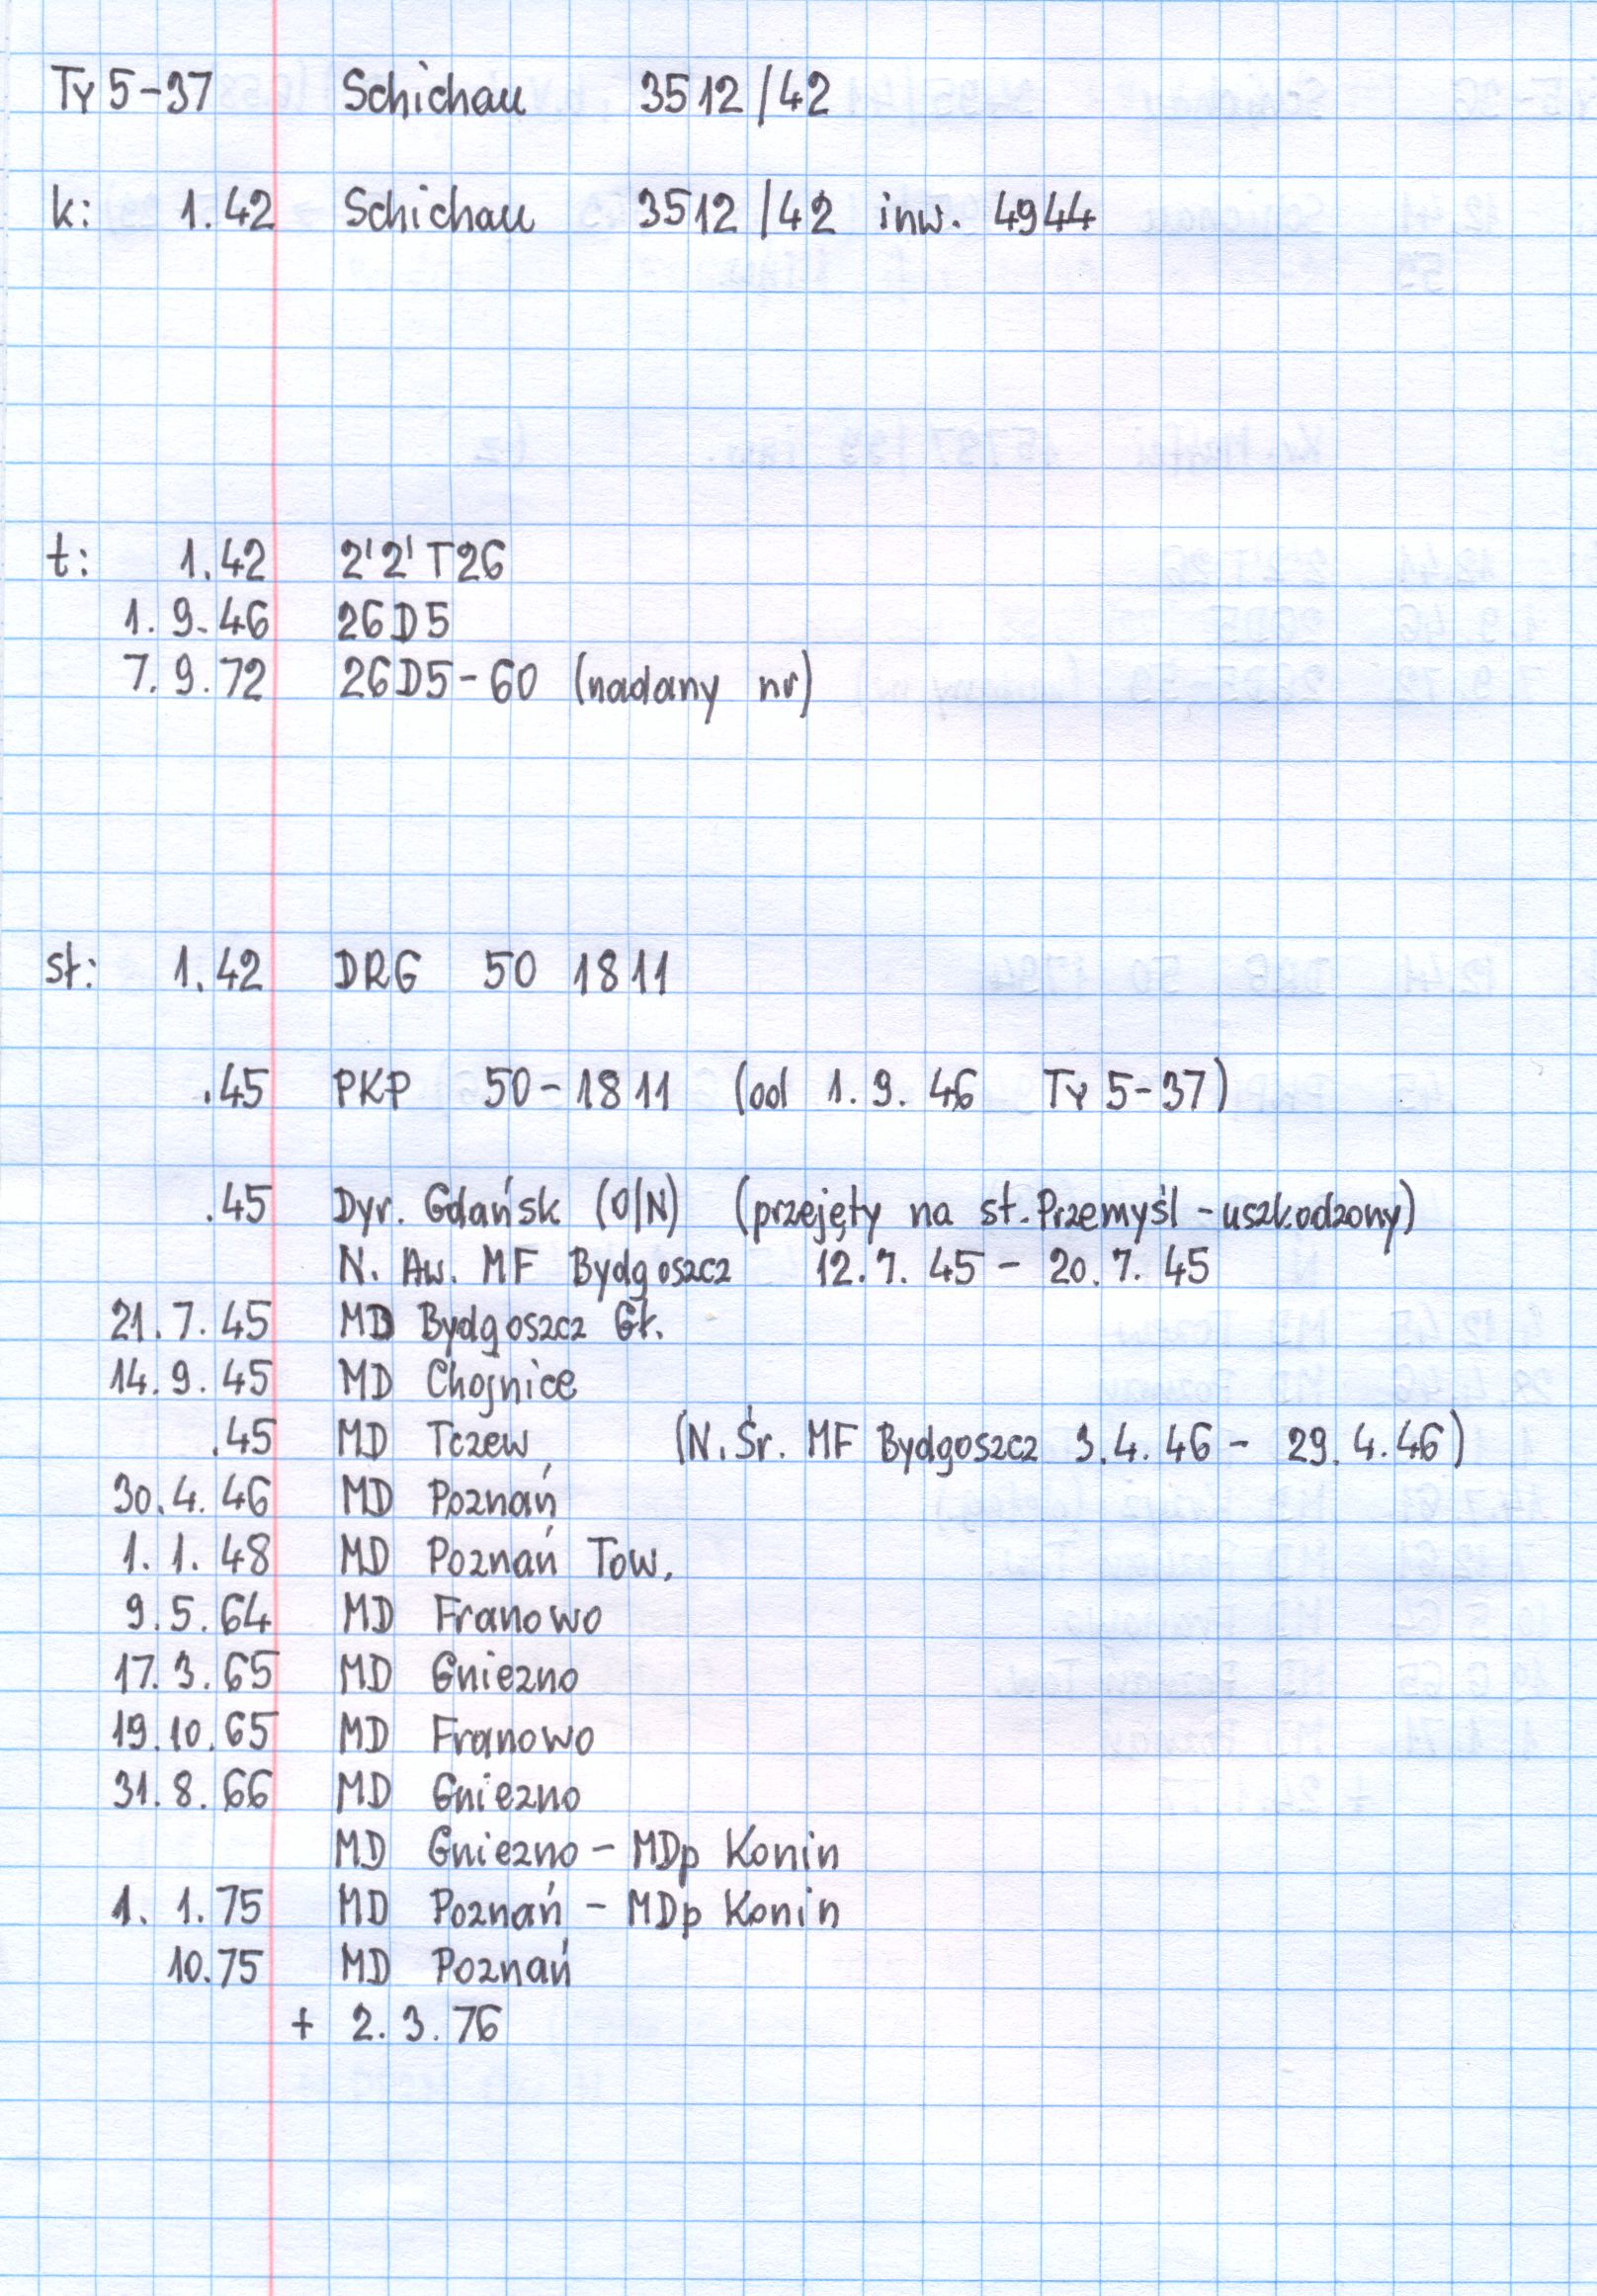 Ty 5-37 Schichau 3512/42
k: 1.42 Schichau 3512/42 inw. 4944
t: 1.42 2'2'T26
1.9.46 26D5
7.9.72 26D5-60 (nadany nr)
sł: 1.42 DRG 50 1811
.45 PKP 50-1811 (od 1.9.46 Ty 5-37)
.45 Dyr. Gdańsk (O/N) (przejęty na st. Przemyśl - uszkodzony)
N. Aw. MF Bydgoszcz 12.7.45 - 20.7.45
21.7.45 MD Bydgoszcz Gł.
14.9.45 MD Chojnice
.45 MD Tczew (N. Śr. MF Bydgoszcz 3.4.46 - 29.4.46)
30.4.46 MD Poznań
1.1.48 MD Poznań Tow.
9.5.64 MD Franowo
17.3.65 MD Gniezno
19.10.65 MD Franowo
31.8.66 MD Gniezno
MD Gniezno - MDp Konin
1.1.75 MD Poznań - MDp Konin
10.75 MD Poznań
+ 2.3.76